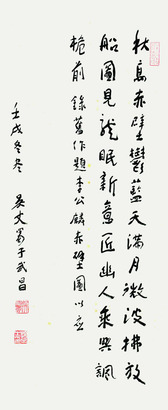 秋高赤壁鬱藍天滿月微波拂放
船圖見龍眠新意匠幽人乘興諷
桅前 錄舊作題李公麟赤壁圖以應
壬戌冬冬 吳丈蜀于武昌